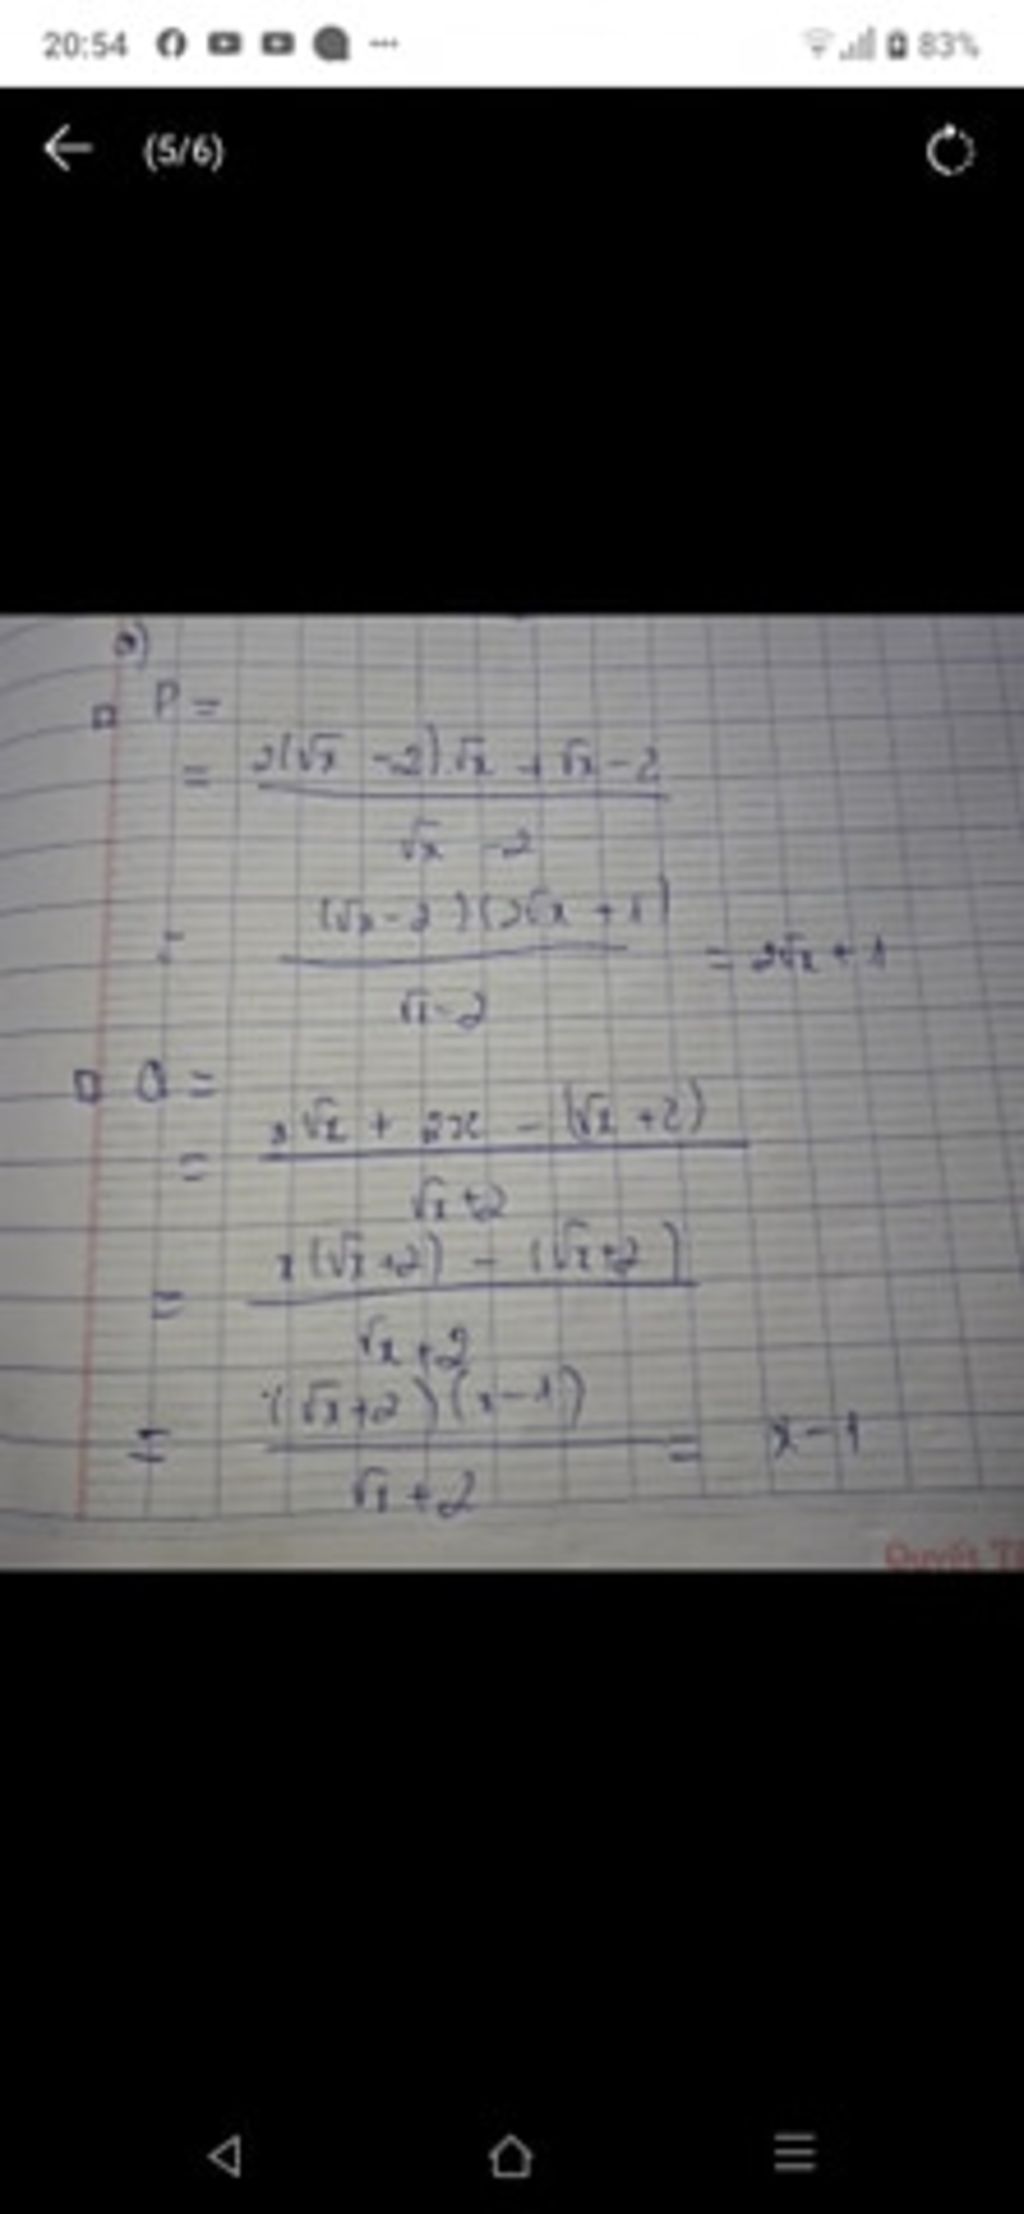 20:54 83%
(5/6)
a)
P =
= 2(√x - 2).√x + √x - 2 / √x - 2
= (√x - 2)(2√x + 1) / √x - 2 = 2√x + 1
Q =
= x√x + 2x - (√x + 2) / √x + 2
= x(√x + 2) - (√x + 2) / √x + 2
= (√x + 2)(x - 1) / √x + 2 = x - 1